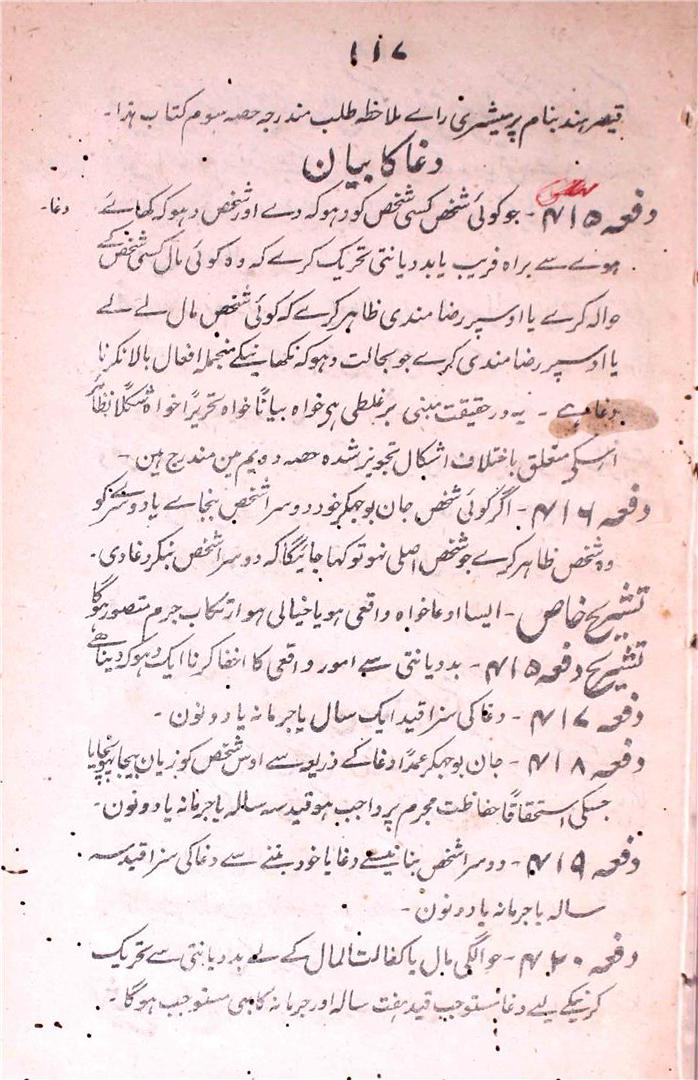 ۱۱۷
قیصر ہند بنام پرمیشری راے ملاحظہ طلب مندرجہ حصہ سوم کتاب ہذا۔
دغا کا بیان
دفعہ ۴۱۵۔ جو کوئی شخص کسی شخص کو دہوکہ دے اور شخص دہوکہ کھاے دغا۔
ہوے سے براہ فریب یا بددیانتی تحریک کرے کہ وہ کوئی مال کسی شخص کے
حوالہ کرے یا اوسپر رضامندی ظاہر کرے کہ کوئی شخص مال لے لے
یا اوسپر رضامندی کرے جو بحالت دہوکہ نکھانیکے منجملہ افعال بالا نکرنا
دغا ہے ۔ یہ در حقیقت مبنی بر غلطی ہی خواہ بیاناً خواہ تحریراً خواہ شکلاً
اسکی متعلق باختلاف اشکال تجویز شدہ حصہ دویم مین مندرج ہین ۔
دفعہ ۴۱۶۔ اگر کوئی شخص جان بوجھکر خود دوسرا شخص بنجاے یا دوسرے کو
وہ شخص ظاہر کرے جو شخص اصلی نہو تو کہا جائیگا کہ دوسرا شخص بنکر دغا دی۔
تشریح خاص ۔ ایسا ادعا خواہ واقعی ہو یا خیالی ہو ارتکاب جرم متصور ہوگا
تشریح دفعہ ۴۱۵۔ بددیانتی سے امور واقعی کا اخفا کرنا ایک دہوکہ دینا ہے
دفعہ ۴۱۷۔ دغا کی سزا قید ایک سال یا جرمانہ یا دونون ۔
دفعہ ۴۱۸۔ جان بوجھکر عمداً دغا کے ذریعہ سے اوس شخص کو زیان بیجا پہونچایا
جسکی استحقاقاً حفاظت مجرم پر واجب ہو قید سہ سالہ یا جرمانہ یا دونون۔
دفعہ ۴۱۹۔ دوسرا شخص بنانیسے دغا یا خود بننے سے دغا کی سزا قید سہ
سالہ یا جرمانہ یا دونون ۔
دفعہ ۴۲۰۔ حوالگی مال یا کفالت المال کے لیے بددیانتی سے تحریک
کرنیکے لیے دغا مستوجب قید ہفت سالہ اور جرمانہ کا بہی مستوجب ہوگا ۔